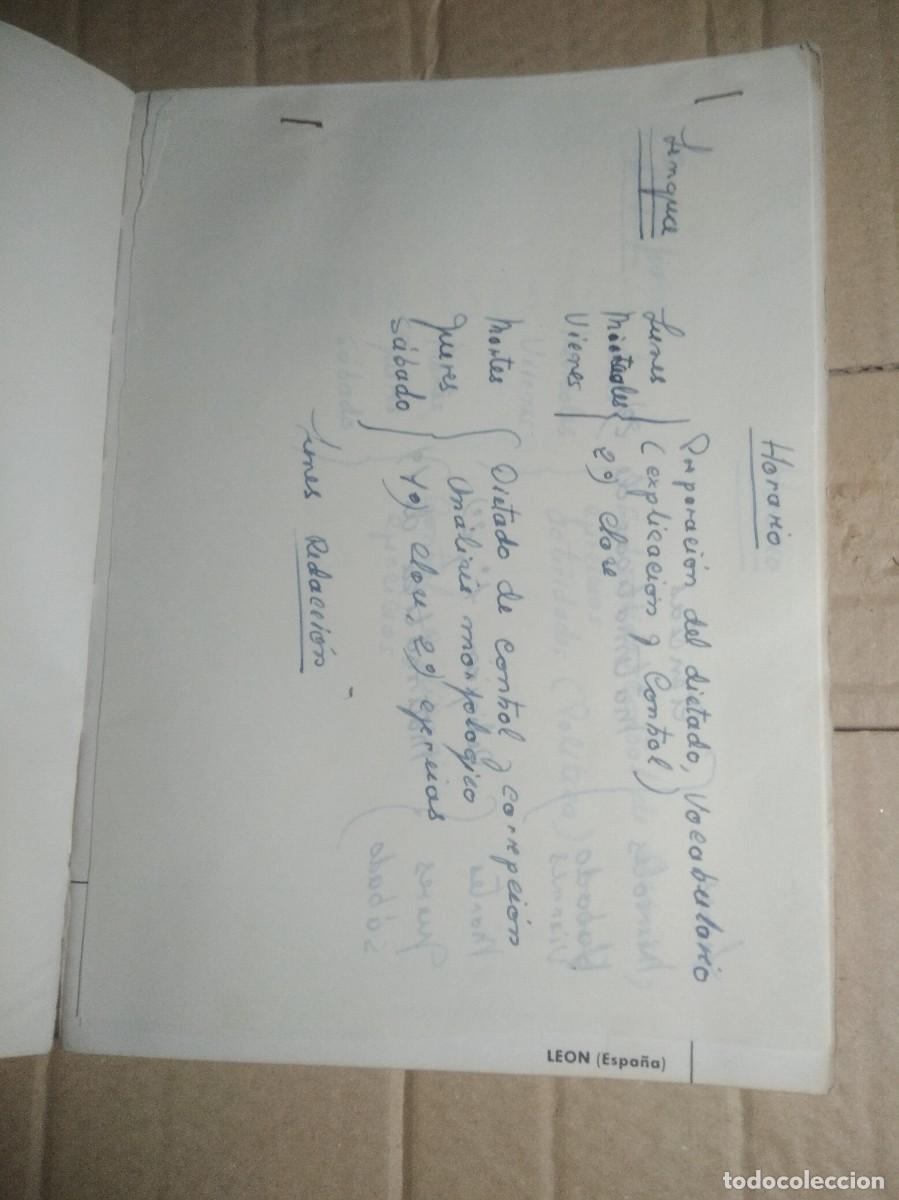 Horario
Lengua
Lunes } Preparación del dictado, Vocabulario
Miercoles } (explicación y Control)
Viernes } 2º) Clase
Martes { Dictado de control y corrección
Jueves { Análisis morfologico
Sábado } 1º) Clase, 2º) ejercicios
Redacción
LEON (España)
todocoleccion